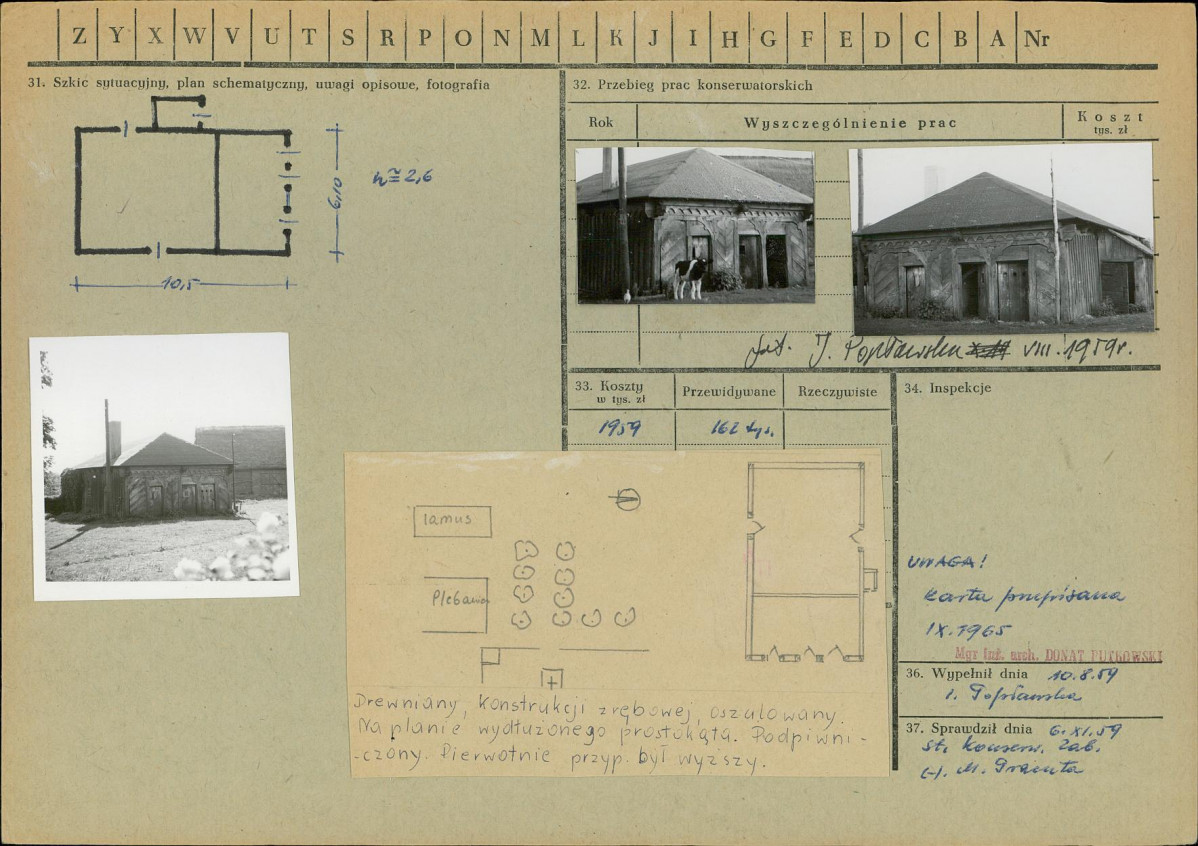 Z Y X W V U T S R P O N M L K J I H G F E D C B A Nr
31. Szkic sytuacyjny, plan schematyczny, uwagi opisowe, fotografia
h ≅ 2,6
6,10
10,5
32. Przebieg prac konserwatorskich
Rok
Wyszczególnienie prac
Koszt
tys. zł
fot. J. Popławska VIII. 1959r.
33. Koszty
w tys. zł
Przewidywane
Rzeczywiste
1959
162 tys.
34. Inspekcje
lamus
Plebania
Drewniany, konstrukcji zrębowej, oszulowany.
Na planie wydłużonego prostokąta. Podpiwni-
-czony. Pierwotnie przyp. był wyższy.
UWAGA!
karta przepisana
IX. 1965
Mgr inż. arch. DONAT PUTKOWSKI
36. Wypełnił dnia 10.8.59
I. Popławska
37. Sprawdził dnia 6.XI.59
st. konserw. Zab.
(-). M.